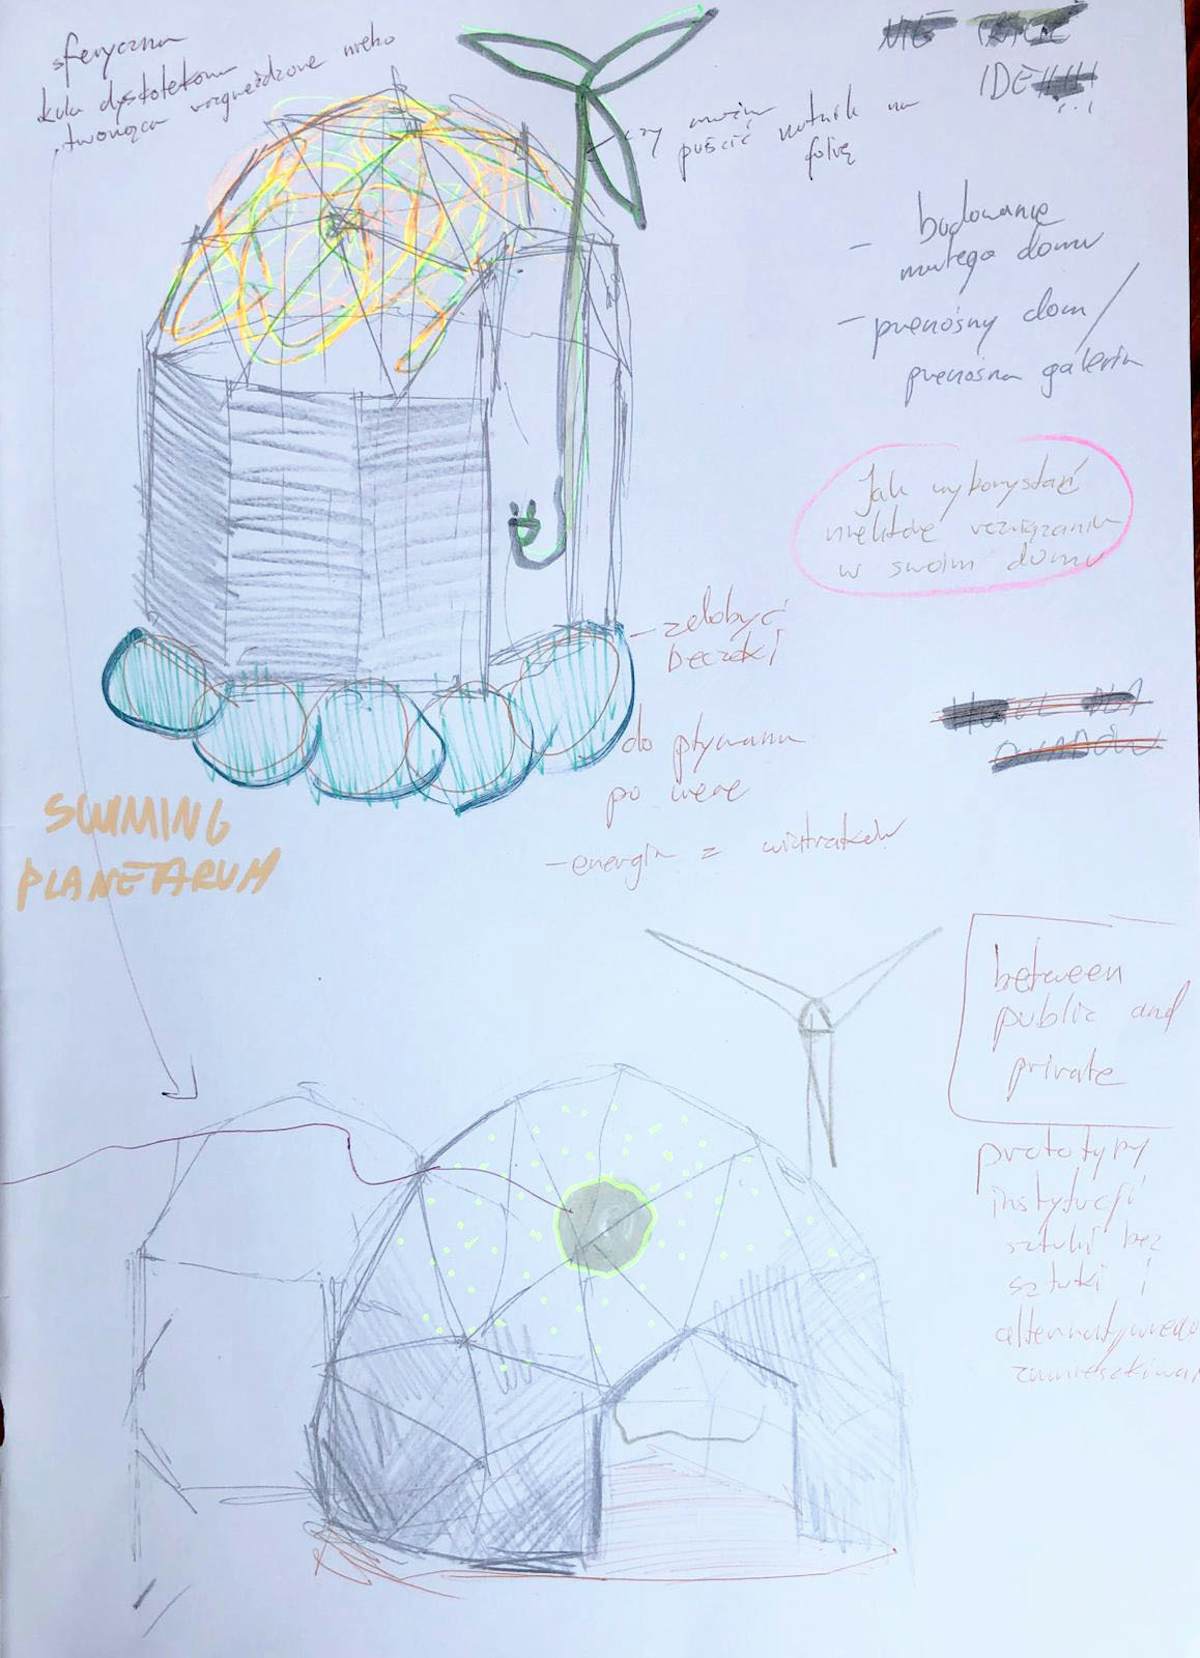 sferyczna
kula dyskotekowa
tworząca rozgwieżdżone niebo
czy można
puścić naturę na
folię
NIE TRACIĆ
IDEI!!!!
- budowanie
małego domu
- przenośny dom /
przenośna galeria
Jak wykorzystać
niektóre rozwiązania
w swoim domu
- zdobyć
beczki
do pływania
po wodzie
- energia z wiatraków
SWIMING
PLANETARUM
between
public and
private
prototypy
instytucji
sztuki bez
sztuki i
alternatywnego